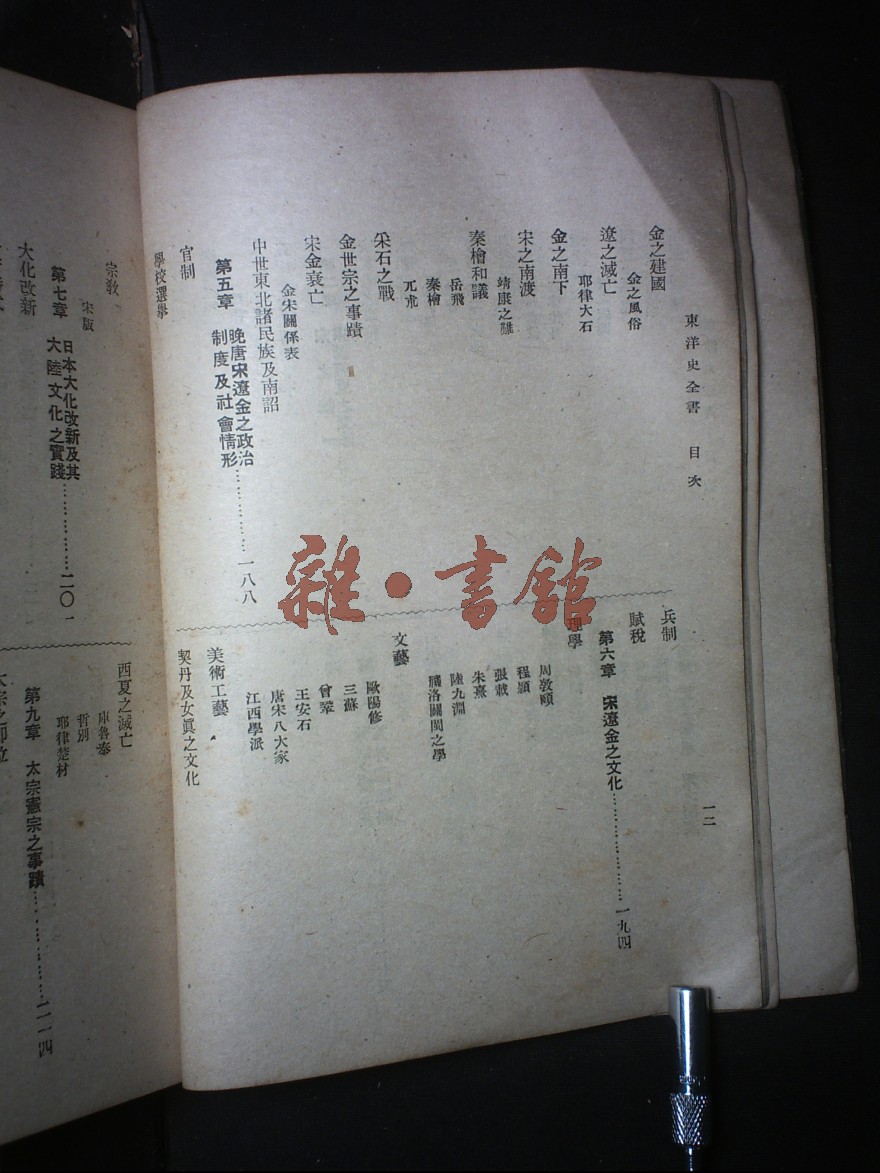 東洋史全書 目次
一二
金之建國
金之風俗
遼之滅亡
耶律大石
金之南下
宋之南渡
靖康之難
秦檜和議
岳飛
秦檜
兀朮
采石之戰
金世宗之事蹟
宋金衰亡
金宋關係表
中世東北諸民族及南詔
第五章 晚唐宋遼金之政治制度及社會情形……………一八八
官制
學校選舉
兵制
賦稅
第六章 宋遼金之文化……………一九四
理學
周敦頤
程顥
張載
朱熹
陸九淵
濂洛關閩之學
文藝
歐陽修
三蘇
曾鞏
王安石
唐宋八大家
江西學派
美術工藝
契丹及女眞之文化
宗教
宋版
第七章 日本大化改新及其大陸文化之實踐……………二〇一
大化改新
西夏之滅亡
庫魯泰
哲別
耶律楚材
第九章 太宗憲宗之事蹟……………二一四
太宗之即位
雜·書館